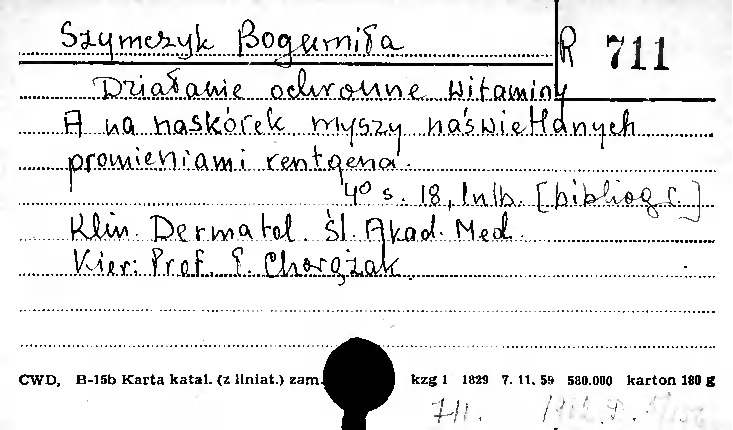 Szymczyk Bogumiła R 711
Działanie ochronne witaminy
A na naskórek myszy naświetlanych
promieniami rentgena.
4° s. 18, lnlb. [bibliogr.]
Klin. Dermatol. Śl. Akad. Med.
Kier: Prof. T. Chorążak
CWD, B-15b Karta katal. (z liniat.) zam. kzg 1 1829 7. 11. 59 580.000 karton 180 g
711.